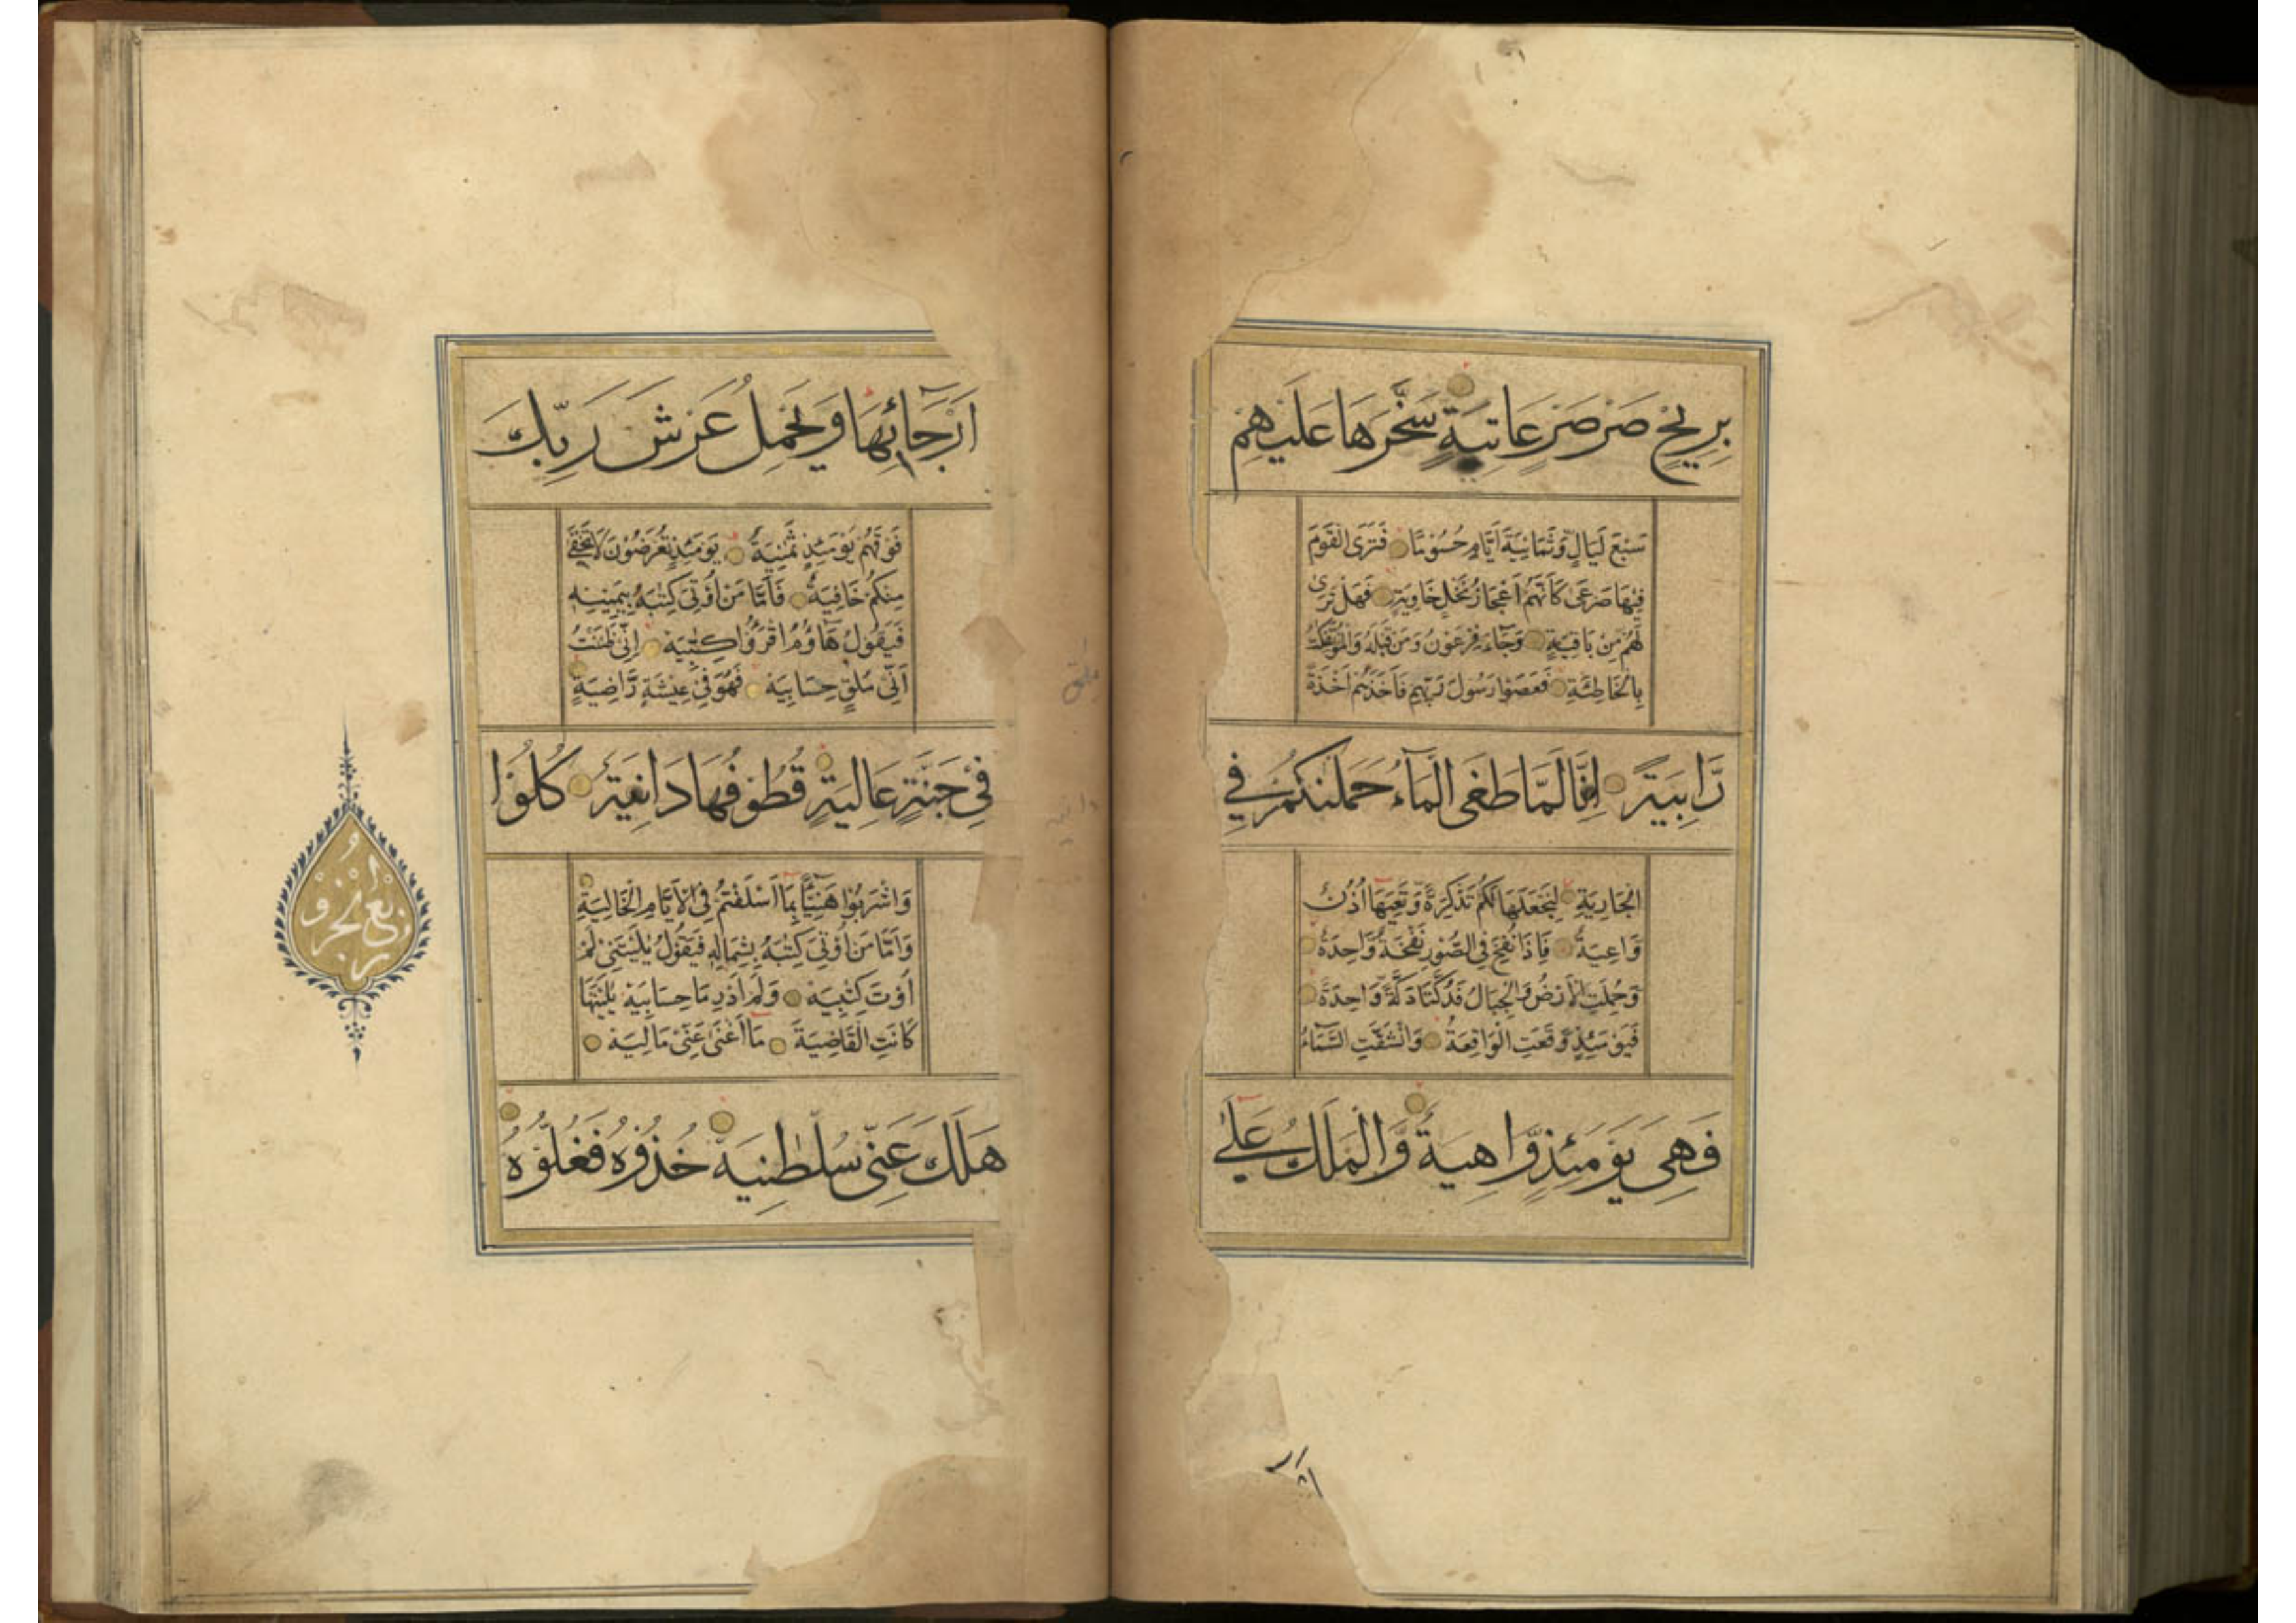 بِرِيحٍ صَرْصَرٍ عَاتِيَةٍ سَخَّرَهَا عَلَيْهِمْ
سَبْعَ لَيَالٍ وَّثَمَانِيَةَ اَيَّامٍ حُسُومًا فَتَرَى الْقَوْمَ
فِيْهَا صَرْعَى كَاَنَّهُمْ اَعْجَازُ نَخْلٍ خَاوِيَةٍ فَهَلْ تَرَى
لَهُمْ مِنْ بَاقِيَةٍ وَجَاءَ فِرْعَوْنُ وَمَنْ قَبْلَهُ وَالْمُؤْتَفِكٰتُ
بِالْخَاطِئَةِ فَعَصَوْا رَسُولَ رَبِّهِمْ فَاَخَذَهُمْ اَخْذَةً
رَّابِيَةً اِنَّا لَمَّا طَغَى الْمَآءُ حَمَلْنٰكُمْ فِي
الْجَارِيَةِ لِنَجْعَلَهَا لَكُمْ تَذْكِرَةً وَّتَعِيَهَا اُذُنٌ
وَاعِيَةٌ فَاِذَا نُفِخَ فِي الصُّوْرِ نَفْخَةٌ وَّاحِدَةٌ
وَحُمِلَتِ الْاَرْضُ وَالْجِبَالُ فَدُكَّتَا دَكَّةً وَّاحِدَةً
فَيَوْمَئِذٍ وَّقَعَتِ الْوَاقِعَةُ وَانْشَقَّتِ السَّمَآءُ
فَهِيَ يَوْمَئِذٍ وَّاهِيَةٌ وَّالْمَلَكُ عَلٰى
اَرْجَآئِهَا وَيَحْمِلُ عَرْشَ رَبِّكَ
فَوْقَهُمْ يَوْمَئِذٍ ثَمٰنِيَةٌ يَوْمَئِذٍ تُعْرَضُوْنَ لَا تَخْفَى
مِنْكُمْ خَافِيَةٌ فَاَمَّا مَنْ اُوْتِيَ كِتٰبَهُ بِيَمِيْنِهِ
فَيَقُوْلُ هَآؤُمُ اقْرَؤُا كِتٰبِيَهْ اِنِّي ظَنَنْتُ
اَنِّي مُلٰقٍ حِسَابِيَهْ فَهُوَ فِي عِيْشَةٍ رَّاضِيَةٍ
فِي جَنَّةٍ عَالِيَةٍ قُطُوْفُهَا دَانِيَةٌ كُلُوْا
وَاشْرَبُوْا هَنِيْئًا بِمَا اَسْلَفْتُمْ فِي الْاَيَّامِ الْخَالِيَةِ
وَاَمَّا مَنْ اُوْتِيَ كِتٰبَهُ بِشِمَالِهِ فَيَقُوْلُ يٰلَيْتَنِيْ لَمْ
اُوْتَ كِتٰبِيَهْ وَلَمْ اَدْرِ مَا حِسَابِيَهْ يٰلَيْتَهَا
كَانَتِ الْقَاضِيَةَ مَا اَغْنٰى عَنِّيْ مَالِيَهْ
هَلَكَ عَنِّي سُلْطٰنِيَهْ خُذُوْهُ فَغُلُّوْهُ
ربع جزو